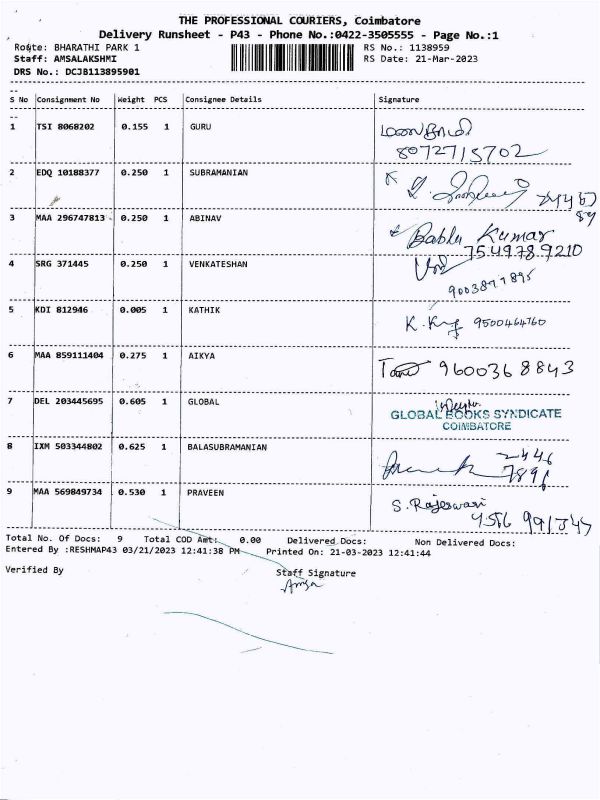 THE PROFESSIONAL COURIERS, Coimbatore
Delivery Runsheet - P43 - Phone No.:0422-3505555 - Page No.:1
Route: BHARATHI PARK 1 RS No.: 1138959
Staff: AMSALAKSHMI RS Date: 21-Mar-2023
DRS No.: DCJB113895901
S No Consignment No Weight PCS Consignee Details Signature
1 TSI 8068202 0.155 1 GURU
8072715702
2 EDQ 10188377 0.250 1 SUBRAMANIAN
3 MAA 296747813 0.250 1 ABINAV Bablu Kumar
7549789210
4 SRG 371445 0.250 1 VENKATESHAN
9003877895
5 KDI 812946 0.005 1 KATHIK K. 9500464760
6 MAA 859111404 0.275 1 AIKYA 9600368843
7 DEL 203445695 0.605 1 GLOBAL GLOBAL BOOKS SYNDICATE
COIMBATORE
8 IXM 503344802 0.625 1 BALASUBRAMANIAN 2446
7896
9 MAA 569849734 0.530 1 PRAVEEN S. Rajeswari
Total No. Of Docs: 9 Total COD Amt: 0.00 Delivered Docs: Non Delivered Docs:
Entered By :RESHMAP43 03/21/2023 12:41:38 PM Printed On: 21-03-2023 12:41:44
Verified By Staff Signature
Amsa